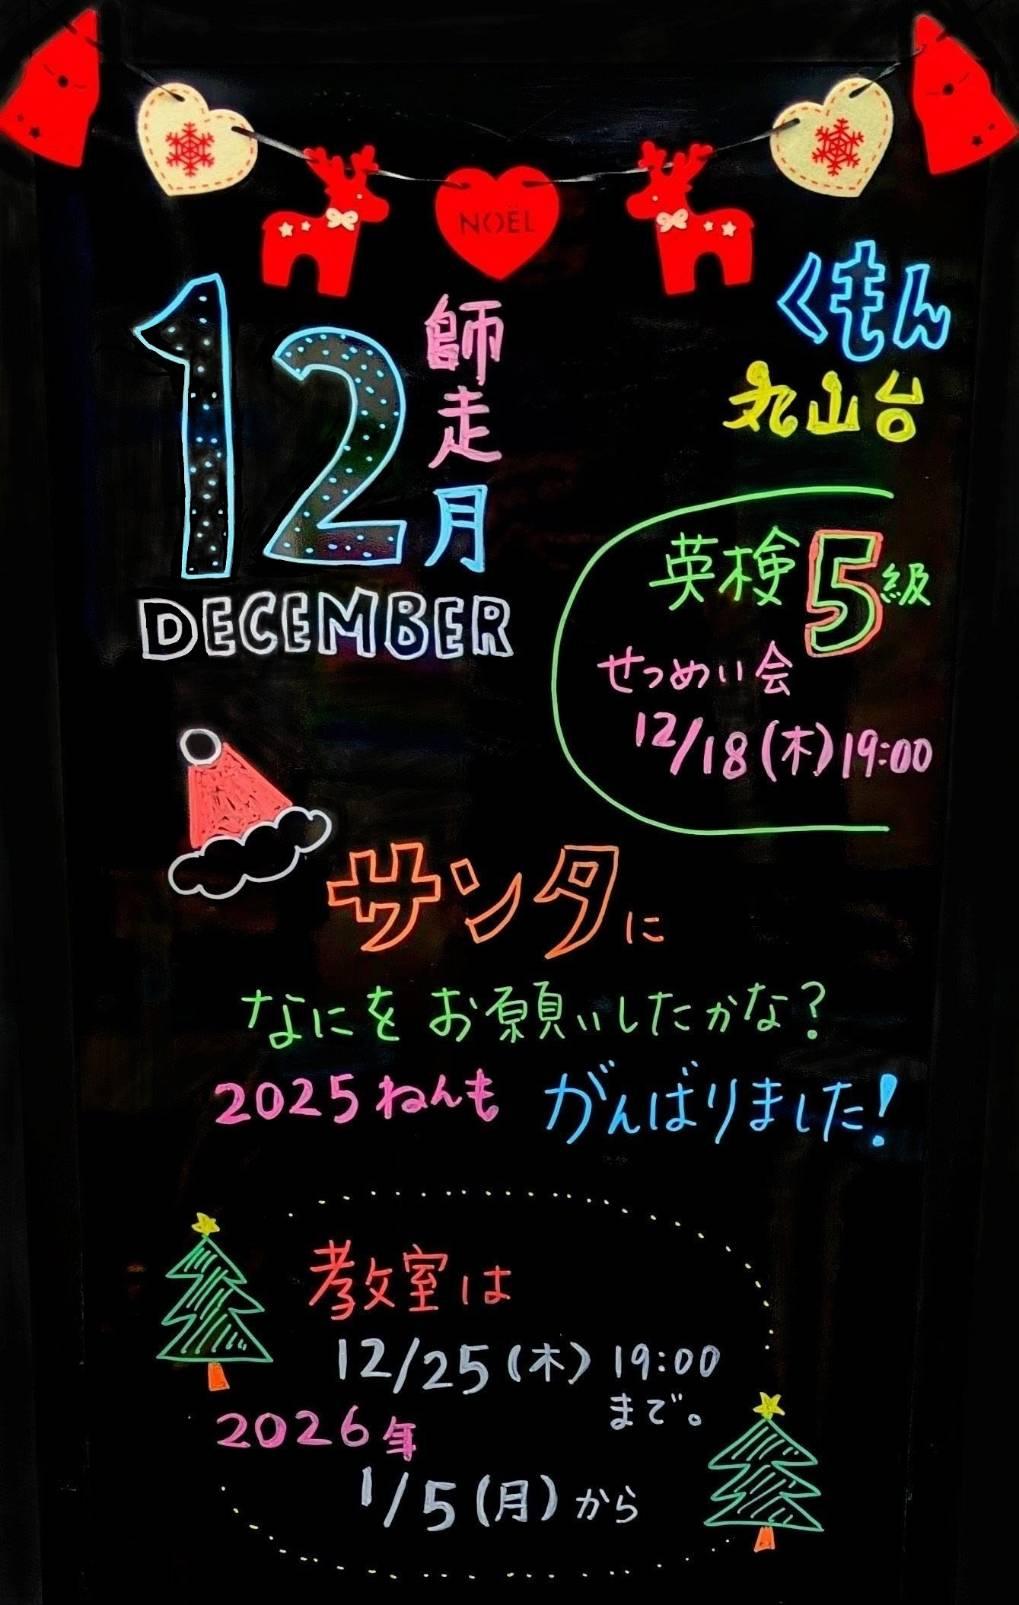 NOËL
くもん
丸山台
12
師走月
DECEMBER
英検5級
せつめい会
12/18(木)19:00
サンタに
なにをお願いしたかな?
2025ねんも がんばりました!
教室は
12/25(木) 19:00
まで。
2026年
1/5(月)から